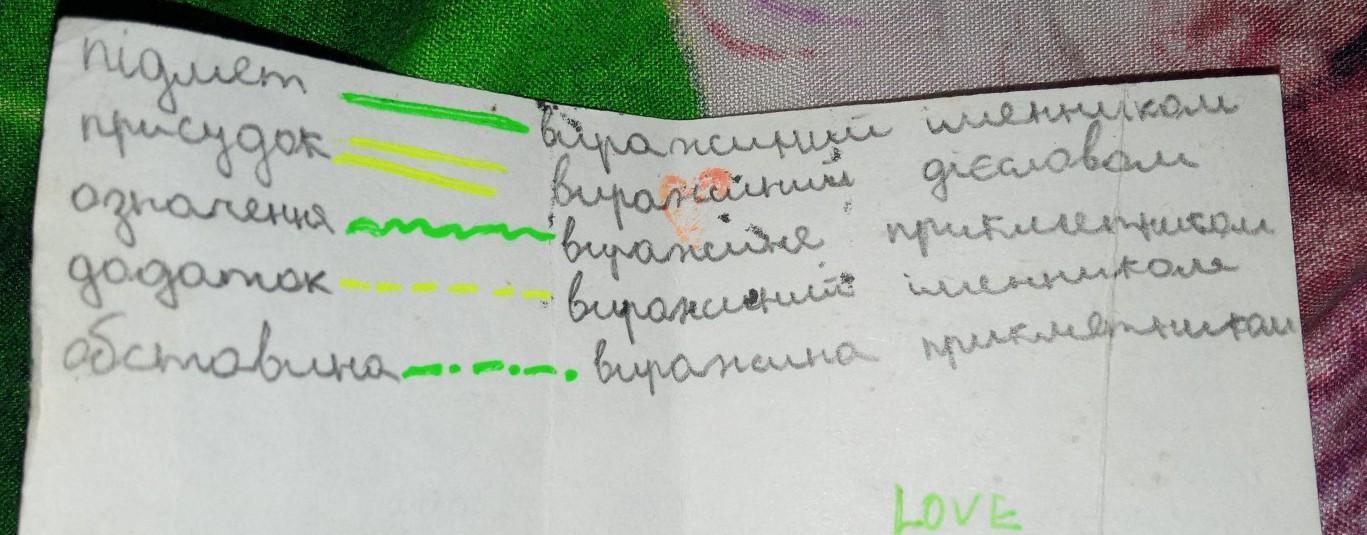 підмет виражиний іменником
присудок виражиний дієсловом
означення виражине прикметником
додаток виражиний іменником
обставина виражина прикметником
LOVE